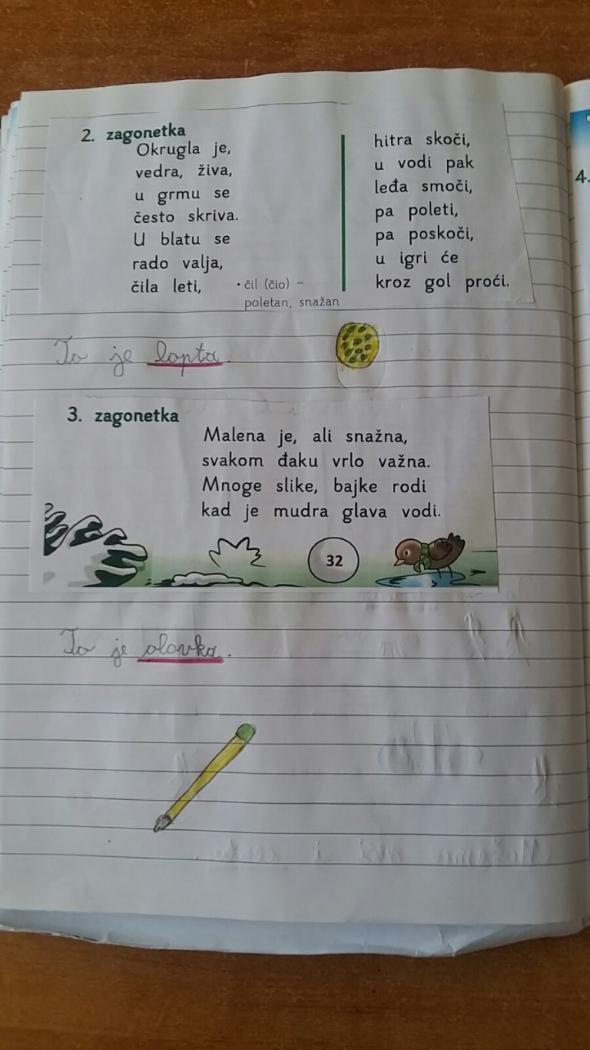 2. zagonetka
Okrugla je,
vedra, živa,
u grmu se
često skriva.
U blatu se
rado valja,
čila leti,
• čil (čio) –
poletan, snažan
hitra skoči,
u vodi pak
leđa smoči,
pa poleti,
pa poskoči,
u igri će
kroz gol proći.
4.
To je lopta.
3. zagonetka
Malena je, ali snažna,
svakom đaku vrlo važna.
Mnoge slike, bajke rodi
kad je mudra glava vodi.
32
To je olovka.